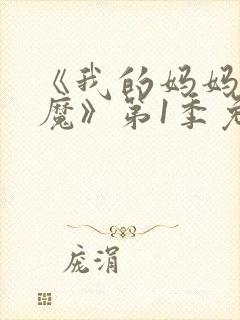 《我的妈妈
魔》第1季免
庞涓